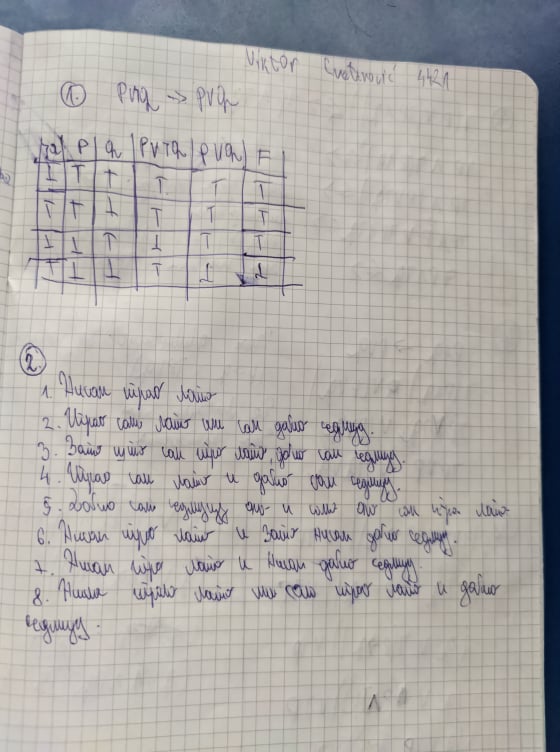 Viktor Cvetković 4421
1. p∨¬q → p∨q
¬q p q p∨¬q p∨q F
⊥ T T T T T
T T ⊥ T T T
⊥ ⊥ T ⊥ T T
T ⊥ ⊥ T ⊥ ⊥
2.
1. Нисам играо лото
2. Играо сам лото или сам добио седмицу.
3. Зато што сам игро лото, добио сам седмицу.
4. Играо сам лото и добио сам седмицу.
5. Добио сам седмицу ако и само ако сам игро лото
6. Нисам игро лото и зато нисам добио седмицу.
7. Нисам игро лото и нисам добио седмицу.
8. играо лото или сам играо лото и добио
седмицу.